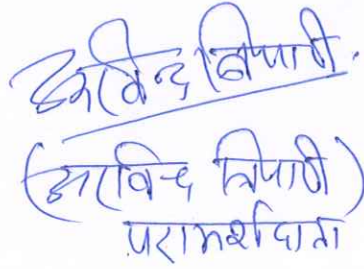 अरविन्द त्रिपाठी
(अरविन्द त्रिपाठी)
परामर्शदाता